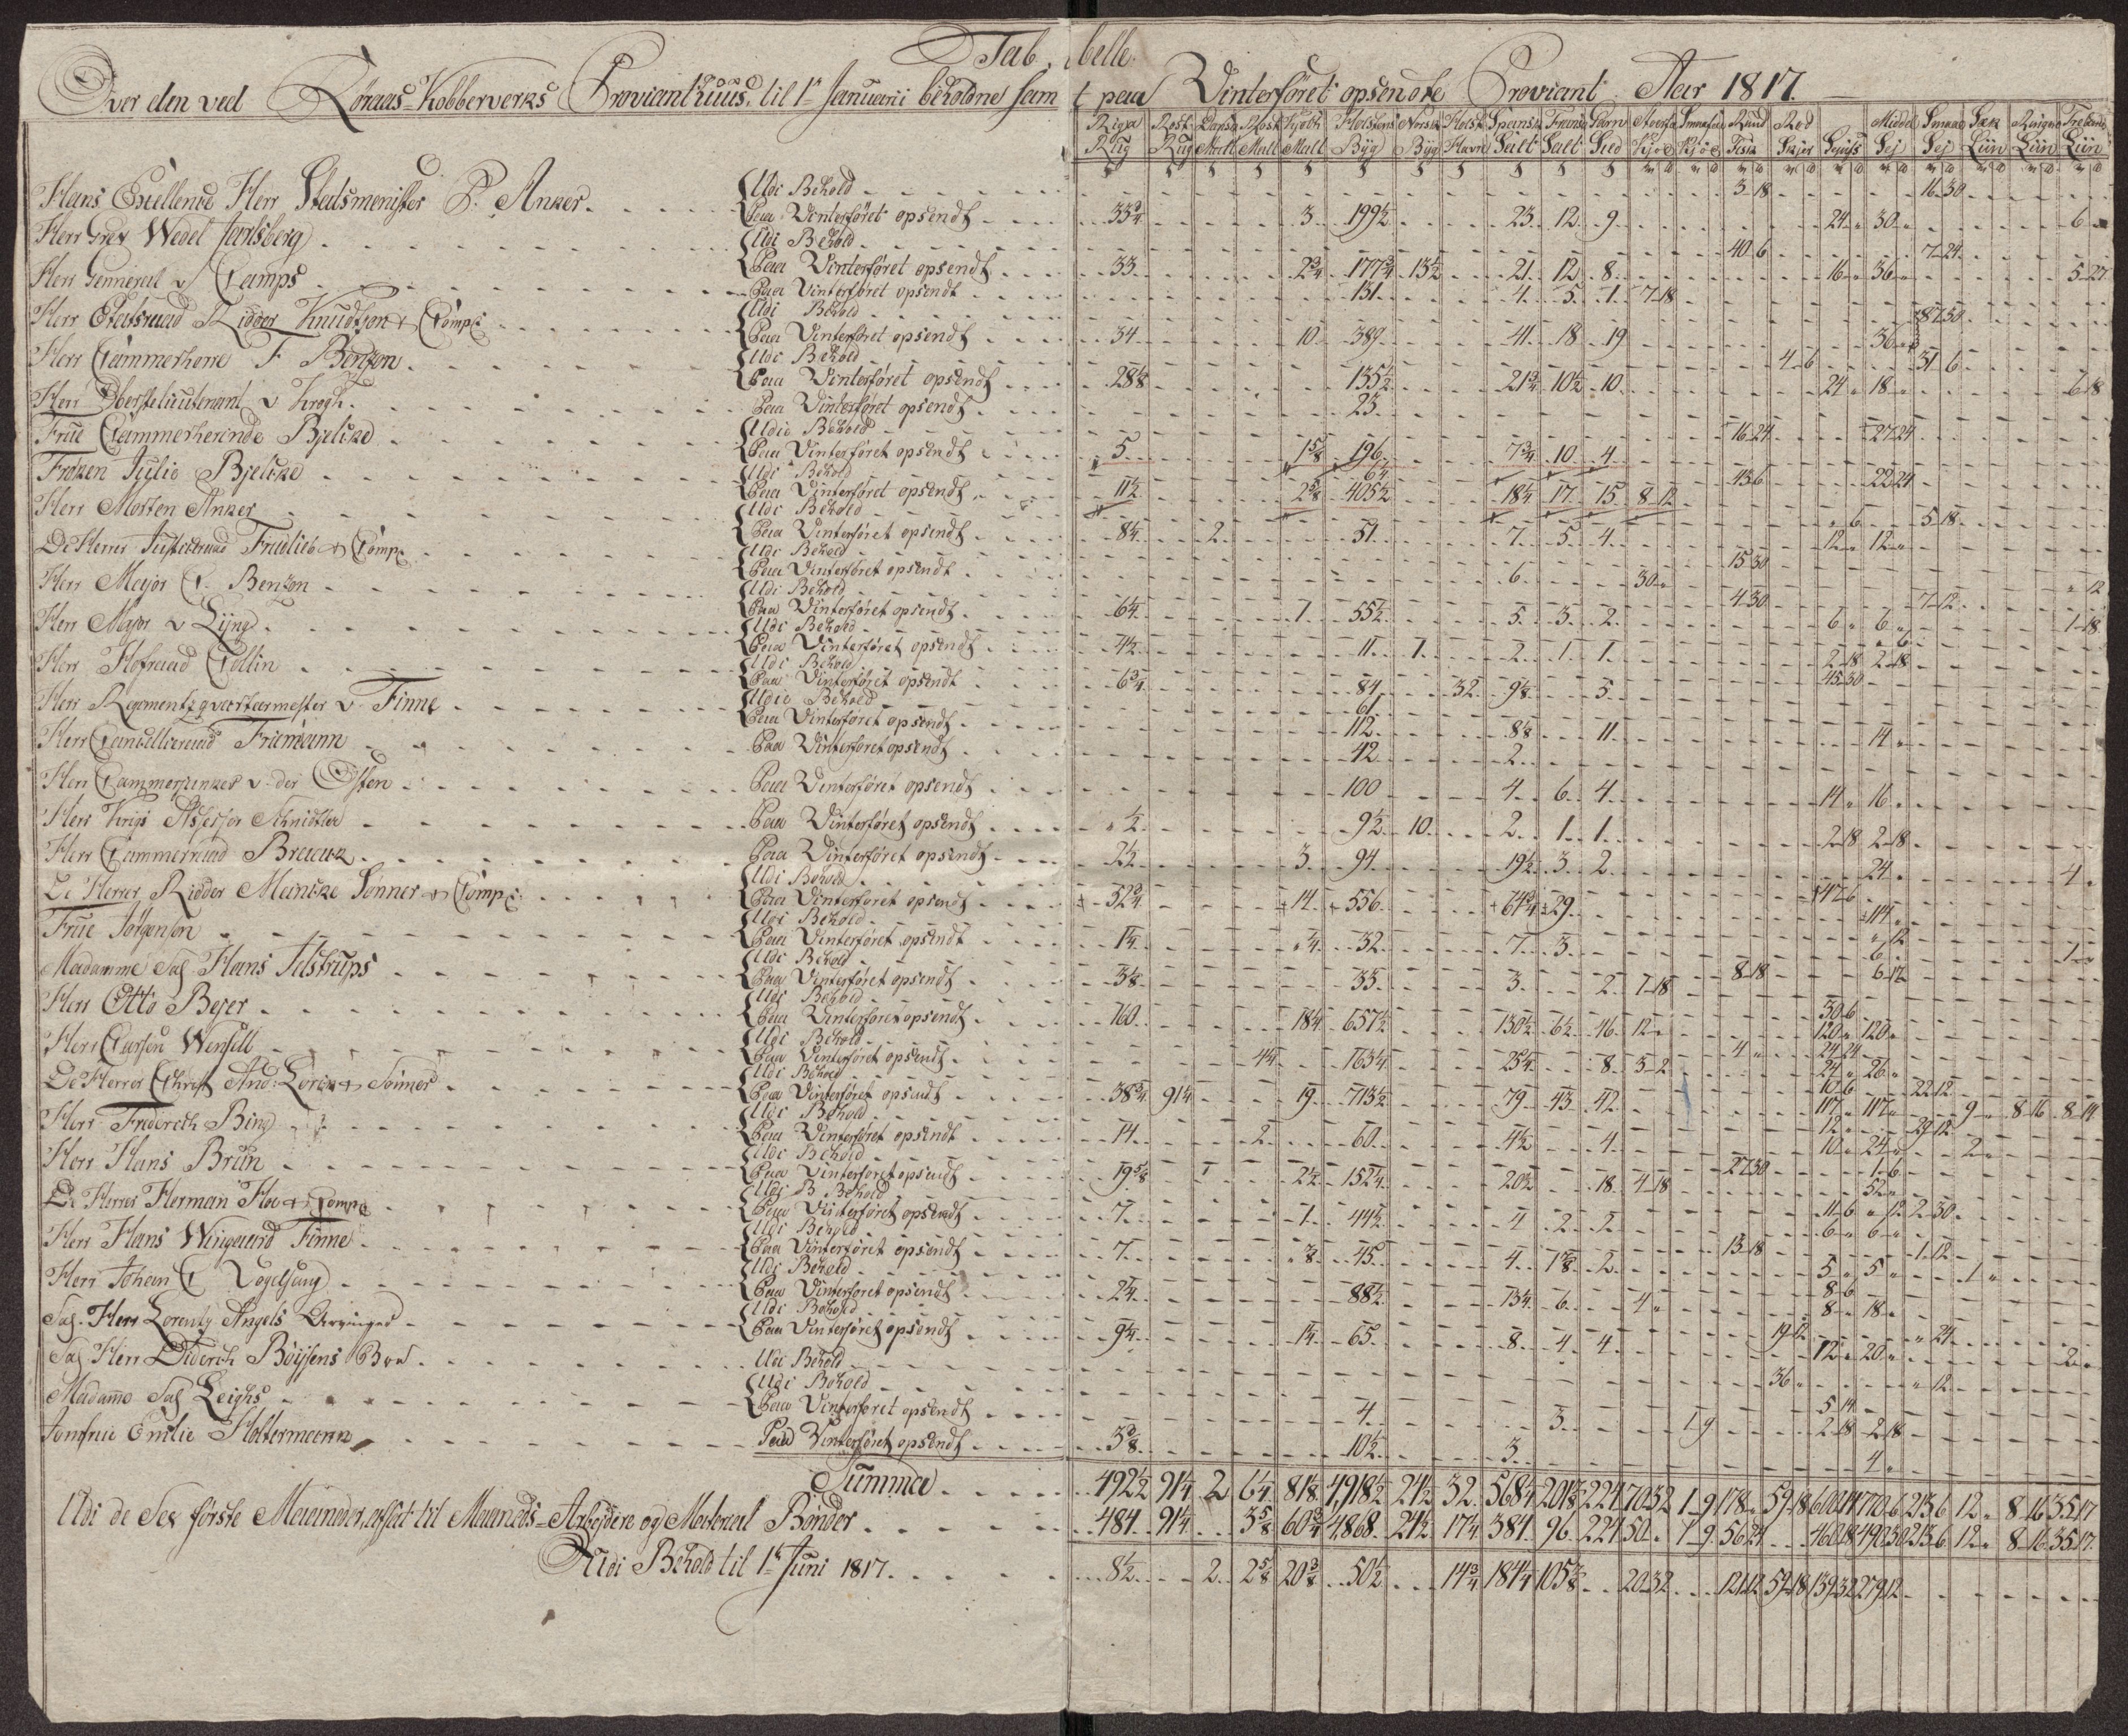 Tabelle
Over den ved Röraas-Kobberverks Proviant huus, til 1e Januarii beholdne samt paa Vinterföret opsendte Proviant Aar 1817.
Riga Rug Rost. Rug Malt Malt Malt Holstens Byg Norsk Byg Holst. Havre Spansk Salt Fransk Salt Sild Kjöd Kjöd Rund Fisk Rød Skjær Middel Sej Smaae Sej Liin Liin Liin
Hans Excellence Herr Statsmenister P. Anker Udi Behold 3 18 16 30
Paa Vinterföret opsendt 33 3/4 3 199 1/2 23 12 9 24 " 30 " 6 "
Herr Grev Wedel Jarlsberg Udi Behold 40 6 7 24
Paa Vinterföret opsendt 33 2 3/4 177 3/4 13 1/2 21 12 8 16 " 36 " 5 27
Herr Genneral v Camps Paa Vinterföret opsendt 131 4 5 1 7 18
Herr Etatsraad Ridder Knudtzon & Comp: Udi Behold 87 30
Paa Vinterföret opsendt 34 10 389 41 18 19 36 "
Herr Cammerherre F Benzon Udi Behold 4 6 31 6
Paa Vinterföret opsendt 28 1/8 135 1/2 21 3/4 10 1/2 10 24 " 18 " 6 18
Herr Oberstelieutenant v Krogh Paa Vinterföret opsendt 23
Frue Cammerherinde Bjelke Udi Behold 16 24 27 24
Paa Vinterföret opsendt 5 1 5/8 196 7 3/4 10 4
Fröken Julie Bjelke Udi Behold 6 1/4 43 6 22 24
Paa Vinterföret opsendt 11 1/2 2 5/8 405 1/2 18 1/4 17 15 8 12
Herr Morten Anker Udi Behold " 6 5 18
Paa Vinterföret opsendt 8 1/4 2 51 7 5 4 12 " 12 "
De Herrer Justitsraad Frielieb & Comp: Udi Behold 15 30
Paa Vinterföret opsendt 6 30 " " 12
Herr Major C. Benzon Udi Behold 4 30 7 12
Paa Vinterföret opsendt 6 1/4 1 55 1/2 5 3 2 6 " 6 " 1 18
Herr Major v Lÿng Udi Behold " 6
Paa Vinterföret opsendt 4 1/2 11 1 2 1 1 2 18 2 18
Herr Hofraad Collin Udi Behold 45 30
Paa Vinterföret opsendt 6 3/4 84 32 9 1/8 5
Herr Regementzqvarteermester v. Finne Udi Behold 61
Paa Vinterföret opsendt 112 8 1/8 11 14 "
Herr Cancelleraad Friemann Paa Vinterföret opsendt 42 2
Herr Cammerjunker v. der Osten Paa Vinterföret opsendt 100 4 6 4 14 " 16 "
Herr Krigs Assessor Schnidtler Paa Vinterföret opsendt " 1/2 9 1/2 10 2 1 1 2 18 2 18
Herr Cammerraad Paa Vinterföret opsendt 2 1/2 3 94 19 1/2 3 2 24 " 4 "
De Herrer Ridder Meincke Sönner & Comp: Udi Behold 147 6
Paa Vinterföret opsendt 32 3/4 14 556 64 3/4 29 114 "
Frue Jörgenson Udi Behold " 12
Paa Vinterföret opsendt 1 1/4 " 3/4 32 7 3 6 " 1 "
Madamme Sal Hans Aalstrups Udi Behold 8 18 6 12
Paa Vinterföret opsendt 3 1/8 33 3 2 7 18
Herr Otto Bejer Udi Behold 30 6
Paa Vinterföret opsendt 160 18 1/4 657 1/2 130 1/2 6 1/2 46 12 " 120 " 120 "
Herr Carsten Wensell Udi Behold 4 " 24 24
Paa Vinterföret opsendt 4 1/4 163 1/4 25 1/4 8 3 2 24 " 26 "
De Herrer Christ And: Lorck & Sönner Udi Behold 10 6 22 12
Paa Vinterföret opsendt 38 3/4 91 1/4 19 713 1/2 79 43 42 117 " 117 " 9 " 8 16 8 14
Herr Friderich Bing Udi Behold 12 " 29 12
Paa Vinterföret opsendt 14 2 60 4 1/2 4 10 " 24 " 2 "
Herr Hans Brun Udi Behold 27 30 1 6
Paa Vinterföret opsendt 19 5/8 2 1/2 152 1/4 20 1/2 18 4 18 52 "
De Herrer Herman Hoe & Comp: Udi Behold 11 6 " 12 2 30
Paa Vinterföret opsendt 7 1 44 1/2 4 2 2 6 " 6 "
Herr Hans Wingaard Finne Udi Behold 13 18 1 12
Paa Vinterföret opsendt 7 " 3/8 45 4 1 7/8 2 5 " 5 " 1 "
Herr Johan C Vogelsang Udi Behold 8 6
Paa Vinterföret opsendt 2 1/4 88 1/2 13 1/4 6 4 " 8 " 18 "
Sal. Herr Lorentz Angels Arvinger Udi Behold 19 12 " 24
Paa Vinterföret opsendt 9 1/4 1 1/4 65 8 4 4 12 " 20 " 2 "
Sal Herr Diderch Böÿsens Boe Udi Behold 36 " " 12
Madame Sal Leighs Udi Behold 5 14
Paa Vinterföret opsendt 4 3 1 9 2 18 2 18
Jomfrue Emilie Holtermann Paa Vinterföret opsendt 3 3/8 10 1/2 3 4 "
Summa 492 1/2 91 1/4 2 6 1/4 81 1/8 4,918 1/2 24 1/2 32 568 1/4 201 3/8 224 70 32 1 9 178 " 59 18 600 14 770 6 213 6 12 " 8 16 35 17
Udi de Sex förste Maaneder, afsat til Maaneds-Arbejdere og Material Bönder 484 91 1/4 3 5/8 60 3/4 4,868 24 1/2 17 1/4 384 96 224 50 " 1 9 56 24 460 18 490 30 213 6 12 " 8 16 35 17
Udi Behold til 1e Juni 1817 8 1/2 2 2 5/8 20 3/8 50 1/2 14 3/4 184 1/4 105 3/8 20 32 121 12 59 18 139 32 279 12